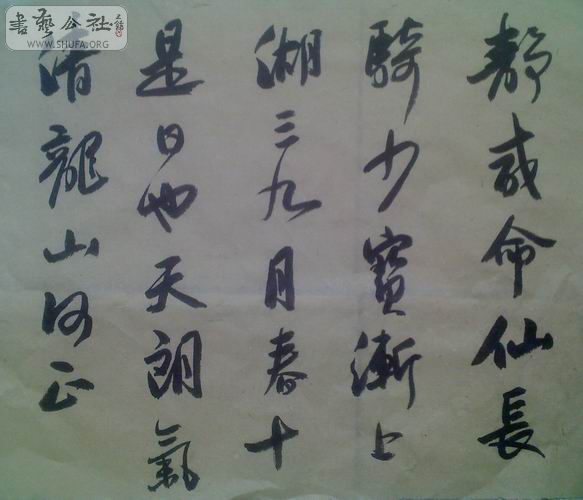 静或命仙長
騎少寶漸上
湖三九月春十
是日也天朗氣
清龍山河正
書藝公社
WWW.SHUFA.ORG